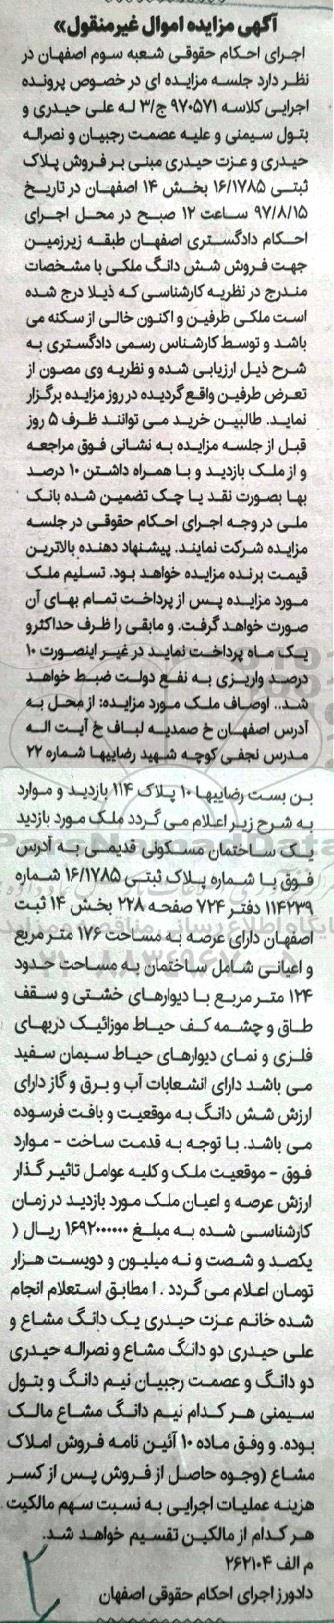 آگهی مزایده اموال غیرمنقول»
اجرای احکام حقوقی شعبه سوم اصفهان در
نظر دارد جلسه مزایده ای در خصوص پرونده
اجرایی کلاسه ۹۷۰۵۷۱ ج/۳ له علی حیدری و
بتول سیمنی و علیه عصمت رجبیان و نصراله
حیدری و عزت حیدری مبنی بر فروش پلاک
ثبتی ۱۶/۱۷۸۵ بخش ۱۴ اصفهان در تاریخ
۹۷/۸/۱۵ ساعت ۱۲ صبح در محل اجرای
احکام دادگستری اصفهان طبقه زیرزمین
جهت فروش شش دانگ ملکی با مشخصات
مندرج در نظریه کارشناسی که ذیلا درج شده
است ملکی طرفین و اکنون خالی از سکنه می
باشد و توسط کارشناس رسمی دادگستری به
شرح ذیل ارزیابی شده و نظریه وی مصون از
تعرض طرفین واقع گردیده در روز مزایده برگزار
نماید. طالبین خرید می توانند ظرف ۵ روز
قبل از جلسه مزایده به نشانی فوق مراجعه
و از ملک بازدید و با همراه داشتن ۱۰ درصد
بها بصورت نقد یا چک تضمین شده بانک
ملی در وجه اجرای احکام حقوقی در جلسه
مزایده شرکت نمایند. پیشنهاد دهنده بالاترین
قیمت برنده مزایده خواهد بود. تسلیم ملک
مورد مزایده پس از پرداخت تمام بهای آن
صورت خواهد گرفت. و مابقی را ظرف حداکثرو
یک ماه پرداخت نماید در غیر اینصورت ۱۰
درصد واریزی به نفع دولت ضبط خواهد
شد.. اوصاف ملک مورد مزایده: از محل به
آدرس اصفهان خ صمدیه لباف خ آیت اله
مدرس نجفی کوچه شهید رضاییها شماره ۲۲
بن بست رضاییها ۱۰ پلاک ۱۱۴ بازدید و موارد
به شرح زیر اعلام می گردد ملک مورد بازدید
یک ساختمان مسکونی قدیمی به آدرس
فوق با شماره پلاک ثبتی ۱۶/۱۷۸۵ شماره
۱۱۴۲۳۹ دفتر ۷۲۴ صفحه ۲۲۸ بخش ۱۴ ثبت
اصفهان دارای عرصه به مساحت ۱۷۶ متر مربع
و اعیانی شامل ساختمان به مساحت حدود
۱۲۴ متر مربع با دیوارهای خشتی و سقف
طاق و چشمه کف حیاط موزائیک دربهای
فلزی و نمای دیوارهای حیاط سیمان سفید
می باشد دارای انشعابات آب و برق و گاز دارای
ارزش شش دانگ به موقعیت و بافت فرسوده
می باشد. با توجه به قدمت ساخت - موارد
فوق - موقعیت ملک و کلیه عوامل تاثیر گذار
ارزش عرصه و اعیان ملک مورد بازدید در زمان
کارشناسی شده به مبلغ ۱۶۹۲۰۰۰۰۰۰ ریال (
یکصد و شصت و نه میلیون و دویست هزار
تومان اعلام می گردد . ا مطابق استعلام انجام
شده خانم عزت حیدری یک دانگ مشاع و
علی حیدری دو دانگ مشاع و نصراله حیدری
دو دانگ و عصمت رجبیان نیم دانگ و بتول
سیمنی هر کدام نیم دانگ مشاع مالک
بوده. و وفق ماده ۱۰ آئین نامه فروش املاک
مشاع (وجوه حاصل از فروش پس از کسر
هزینه عملیات اجرایی به نسبت سهم مالکیت
هر کدام از مالکین تقسیم خواهد شد.
م الف ۲۶۲۱۰۴
دادورز اجرای احکام حقوقی اصفهان